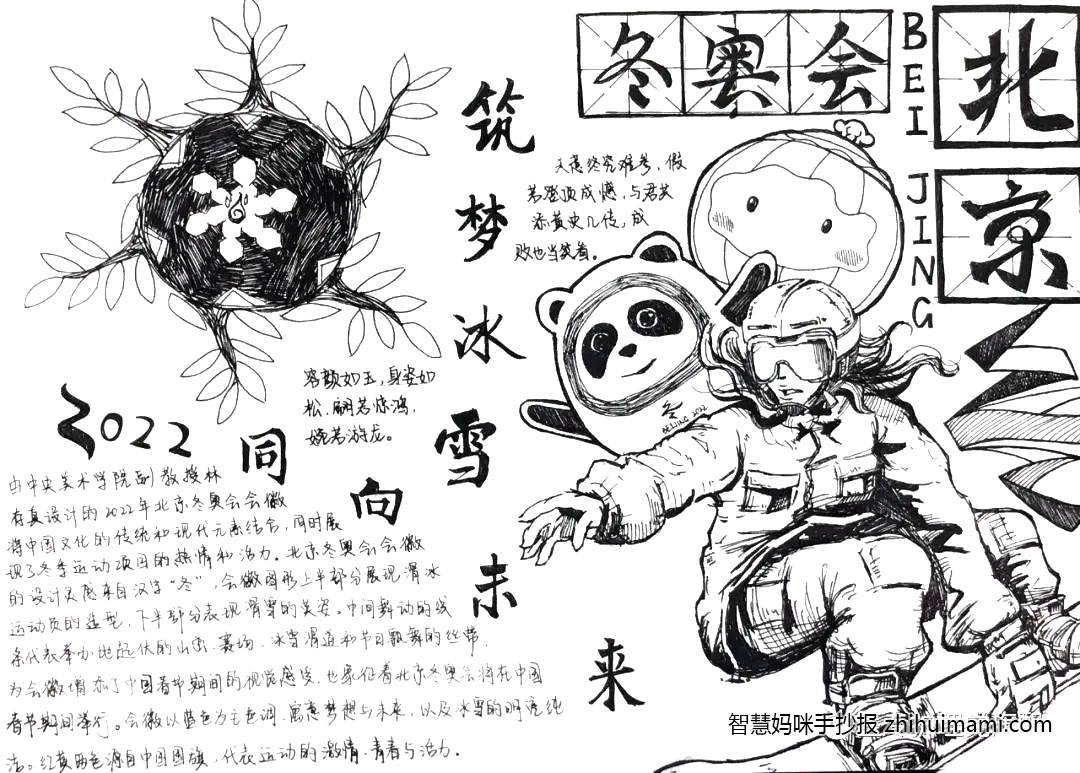 冬奥会
北京
BEI JING
筑梦冰雪
同向未来
天意终究难参，假
若登顶成憾，与君共
添黄史几传，成
败也当笑看。
容颜如玉，身姿如
松，翩若惊鸿，
婉若游龙。
冬
BEIJING 2022
2022
由中央美术学院副教授林
存真设计的2022年北京冬奥会会徽
将中国文化的传统和现代元素结合，同时展
现了冬季运动项目的热情和活力。北京冬奥会会徽
的设计灵感来自汉字“冬”，会徽图形上半部分展现滑冰
运动员的造型，下半部分表现滑雪的英姿。中间舞动的线
条代表举办地起伏的山峦、赛场、冰雪滑道和节日飘舞的丝带，
为会徽增添了中国春节期间的视觉感受，也象征着北京冬奥会将在中国
春节期间举行。会徽以蓝色为主色调，寓意梦想与未来，以及冰雪的明亮纯
洁。红黄两色源自中国国旗，代表运动的激情、青春与活力。
智慧妈咪手抄报 zhihuimami.com